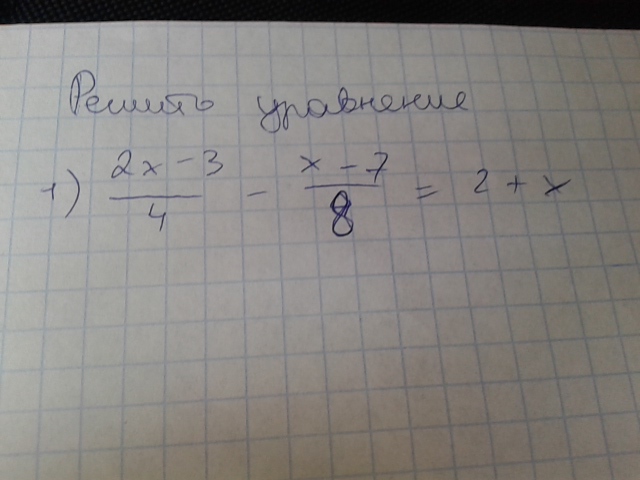 Решить уравнение
1) \frac{2x-3}{4} - \frac{x-7}{8} = 2 + x